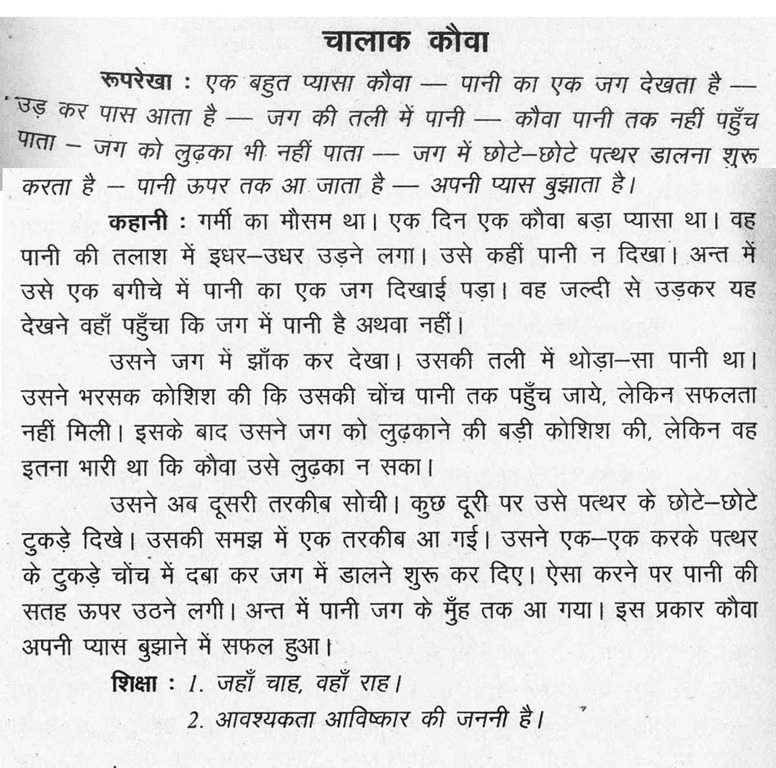 चालाक कौवा
रूपरेखा : एक बहुत प्यासा कौवा — पानी का एक जग देखता है —
उड़ कर पास आता है — जग की तली में पानी — कौवा पानी तक नहीं पहुँच
पाता – जग को लुढ़का भी नहीं पाता — जग में छोटे–छोटे पत्थर डालना शुरू
करता है – पानी ऊपर तक आ जाता है — अपनी प्यास बुझाता है।
कहानी : गर्मी का मौसम था। एक दिन एक कौवा बड़ा प्यासा था। वह
पानी की तलाश में इधर–उधर उड़ने लगा। उसे कहीं पानी न दिखा। अन्त में
उसे एक बगीचे में पानी का एक जग दिखाई पड़ा। वह जल्दी से उड़कर यह
देखने वहाँ पहुँचा कि जग में पानी है अथवा नहीं।
उसने जग में झाँक कर देखा। उसकी तली में थोड़ा–सा पानी था।
उसने भरसक कोशिश की कि उसकी चोंच पानी तक पहुँच जाये, लेकिन सफलता
नहीं मिली। इसके बाद उसने जग को लुढ़काने की बड़ी कोशिश की, लेकिन वह
इतना भारी था कि कौवा उसे लुढ़का न सका।
उसने अब दूसरी तरकीब सोची। कुछ दूरी पर उसे पत्थर के छोटे–छोटे
टुकड़े दिखे। उसकी समझ में एक तरकीब आ गई। उसने एक–एक करके पत्थर
के टुकड़े चोंच में दबा कर जग में डालने शुरू कर दिए। ऐसा करने पर पानी की
सतह ऊपर उठने लगी। अन्त में पानी जग के मुँह तक आ गया। इस प्रकार कौवा
अपनी प्यास बुझाने में सफल हुआ।
शिक्षा : 1. जहाँ चाह, वहाँ राह।
2. आवश्यकता आविष्कार की जननी है।